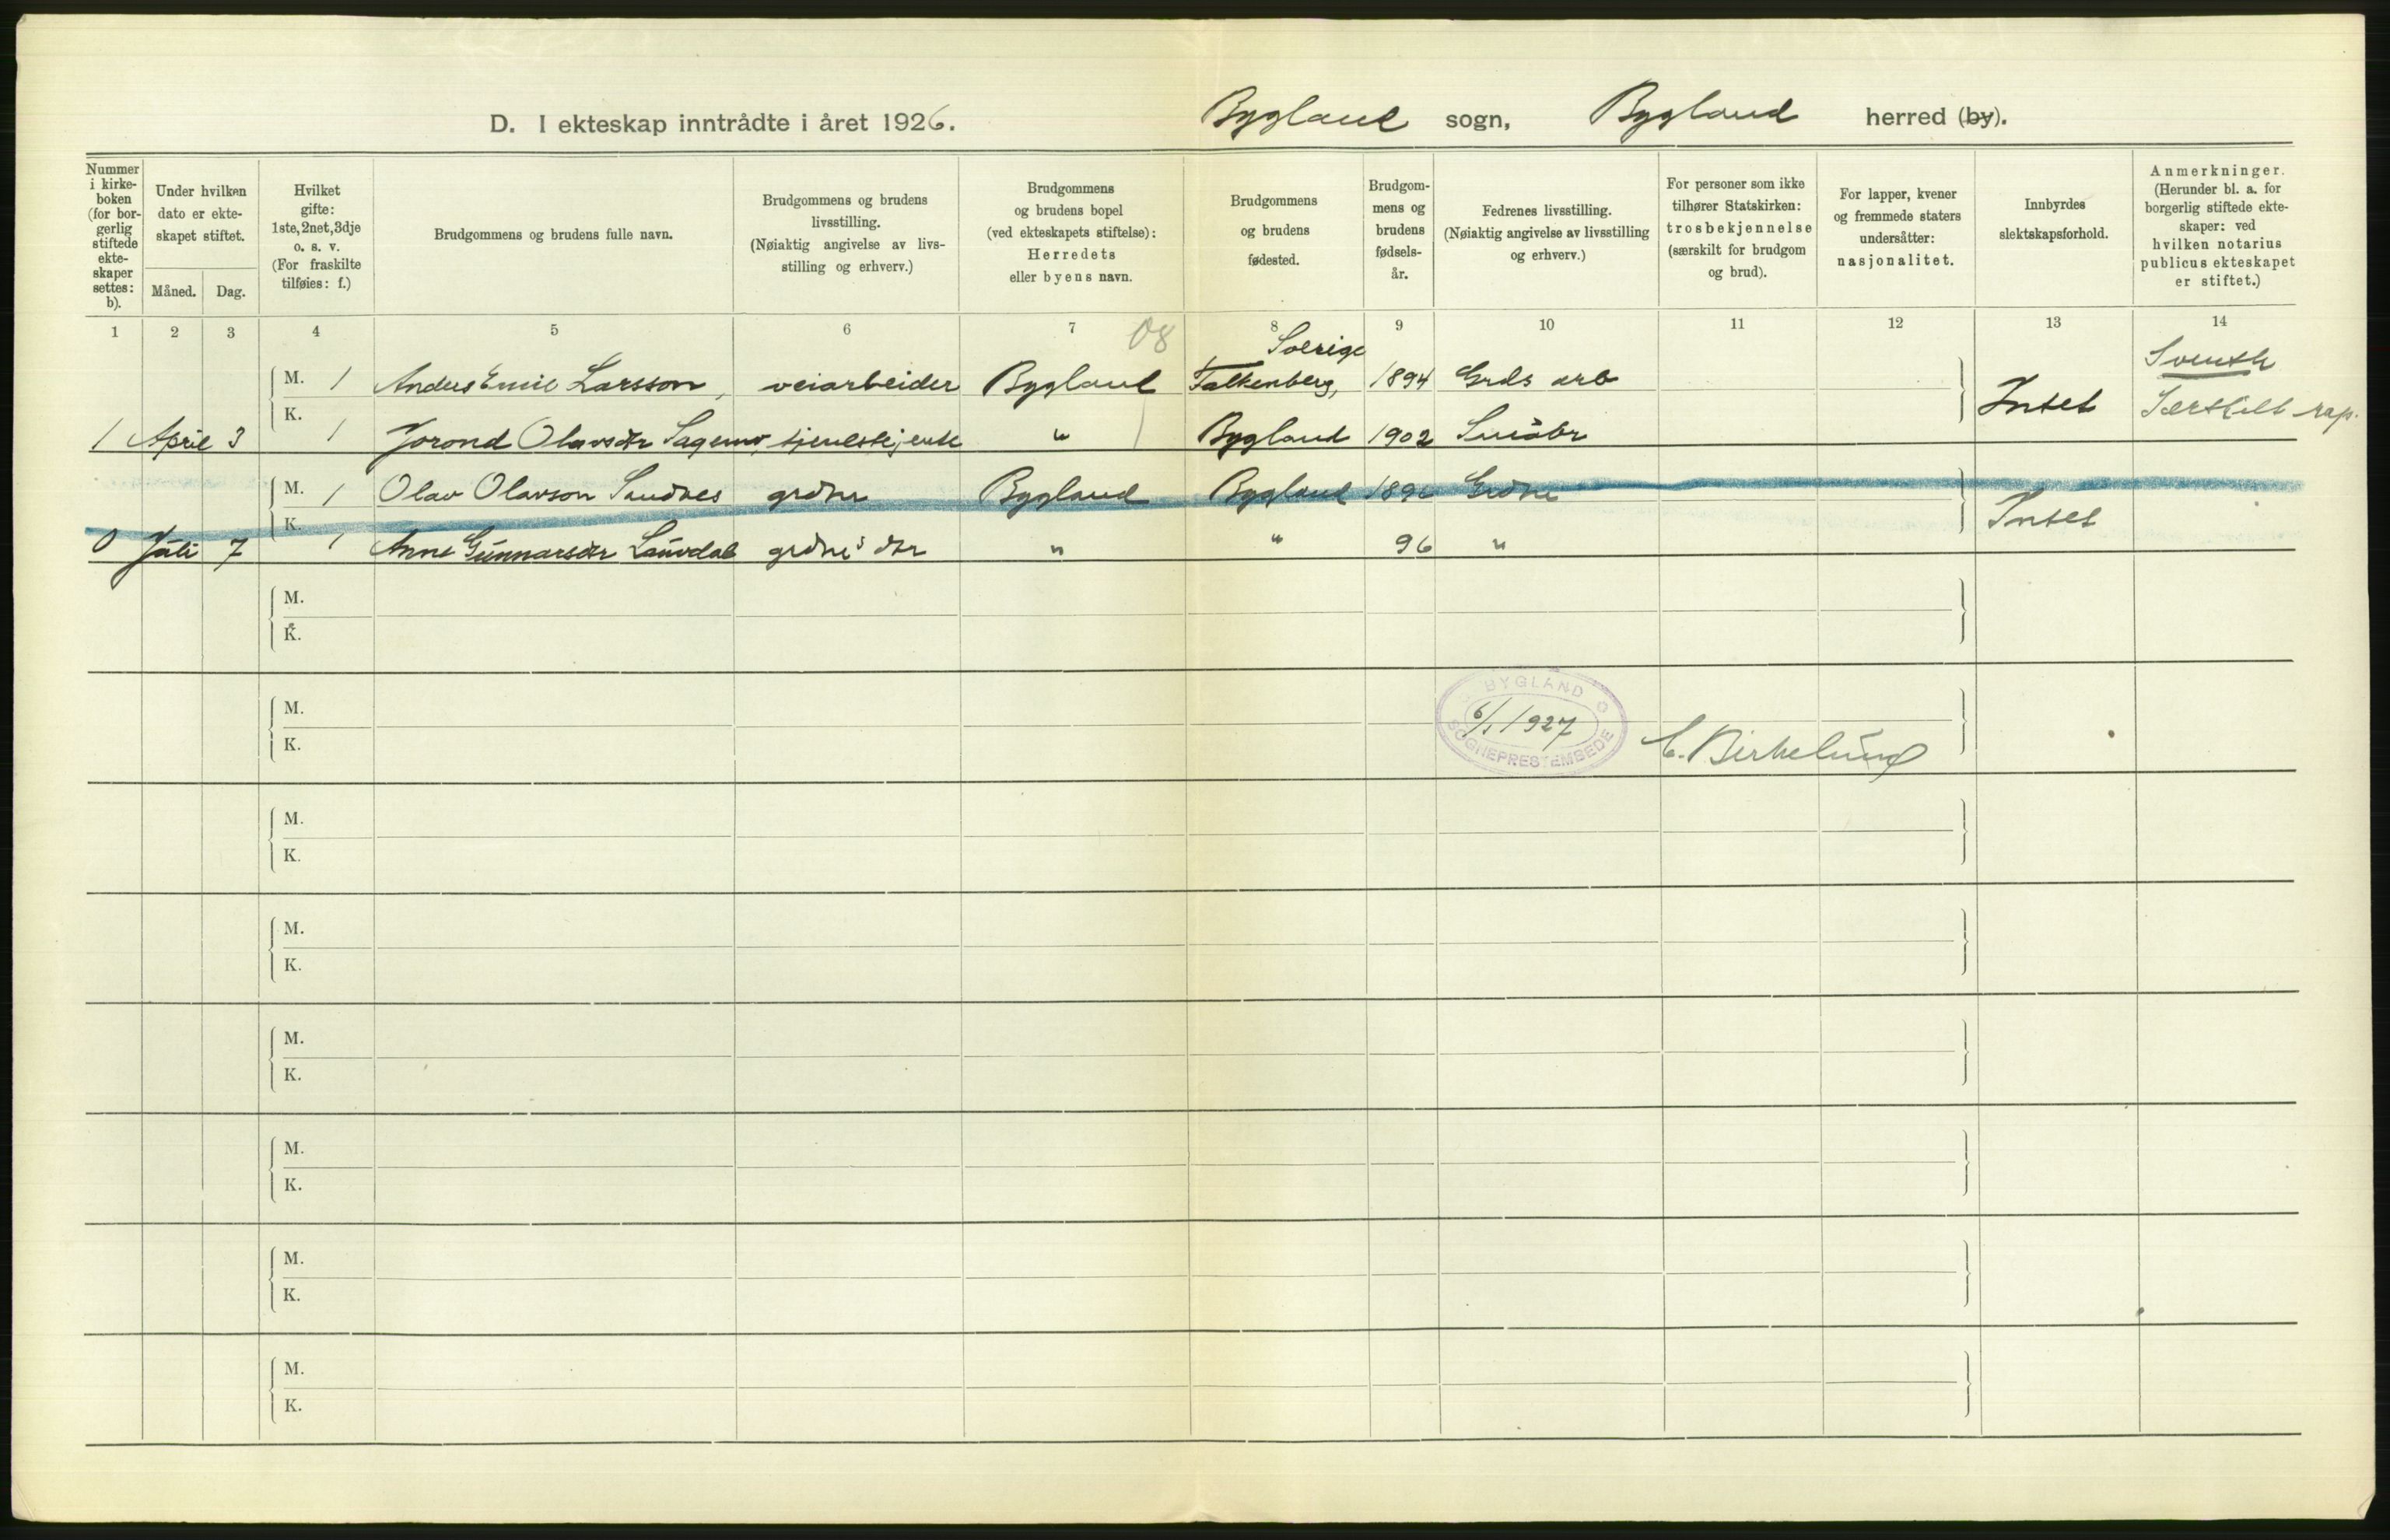 D. I ekteskap inntrådte i året 1926. Bygland sogn, Bygland herred (by).
Nummer i kirke-boken (for bor-gerlig stiftede ekte-skaper settes: b).
Under hvilken dato er ekte-skapet stiftet.
Måned. Dag.
Hvilket gifte: 1ste, 2net, 3dje o. s. v. (For fraskilte tilføies: f.)
Brudgommens og brudens fulle navn.
Brudgommens og brudens livsstilling. (Nøiaktig angivelse av livs-stilling og erhverv.)
Brudgommens og brudens bopel (ved ekteskapets stiftelse): Herredets eller byens navn.
Brudgommens og brudens fødested.
Brudgom-mens og brudens fødsels-år.
Fedrenes livsstilling. (Nøiaktig angivelse av livsstilling og erhverv.)
For personer som ikke tilhører Statskirken: trosbekjennelse (særskilt for brudgom og brud).
For lapper, kvener og fremmede staters undersåtter: nasjonalitet.
Innbyrdes slektskapsforhold.
Anmerkninger. (Herunder bl. a. for borgerlig stiftede ekte-skaper: ved hvilken notarius publicus ekteskapet er stiftet.)
1 2 3 4 5 6 7 8 9 10 11 12 13 14
08
Sverige
Svensk
M. 1 Anders Emil Larsson, veiarbeider Bygland Falkenberg, 1894 Grds arb
Intet Særskilt rap.
K.
1 April 3 1 Jorond Olavsdtr tjenestejente " Bygland 1902 Småbr
M. 1 Olav Olavson Sandnes grdbr Bygland Bygland Grdbr
K.
Intet
0 Juli 7 1 Anne Gunnarsdtr Lauvdal grdbr's dtr " " 96 "
M.
K.
M.
K.
BYGLAND SOGNEPRESTEMBEDE
6/1 1927
C. Birkelund
M.
K.
M.
K.
M.
K.
M.
K.
M.
K.
M.
K.